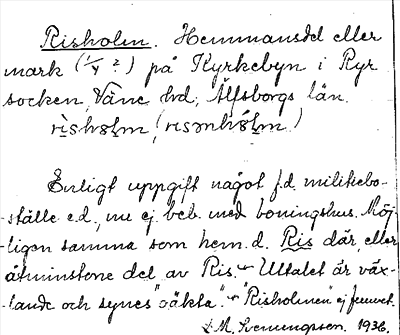 Risholm. Hemmansdel eller
mark (1/4 ?) på Kyrkebyn i Ryr
socken, Väne hd, Älfsborgs län.
rìshòlm, (rısənhólm)
Enligt uppgift något f.d. militiebo-
ställe e.d., nu ej beb. med boningshus. Möj-
ligen samma som hem.d. Ris där, eller
åtminstone del av Ris. – Uttalet är väx-
lande och synes "oäkta". – "Risholmen" ej
L. M. Svenungsson. 1936.